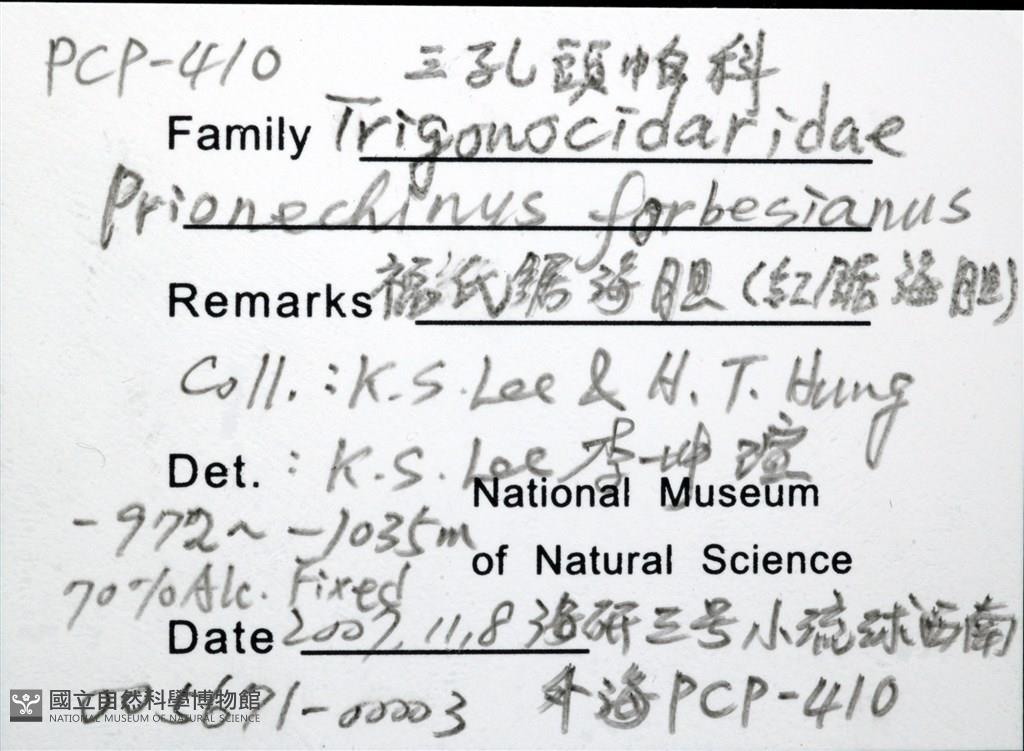 PCP-410 三孔頭帕科
Family Trigonocidaridae
Prionechinus forbesianus
Remarks 福氏鋸海胆(紅鋸海胆)
Coll.:K.S.Lee & H.T.Hung
Det. : K.S.Lee 李坤瑄
National Museum
-972~ -1035m
of Natural Science
70%Alc. Fixed
Date 2007,11,8 海研三号小琉球西南
外海PCP-410
671-00003
國立自然科學博物館
NATIONAL MUSEUM OF NATURAL SCIENCE